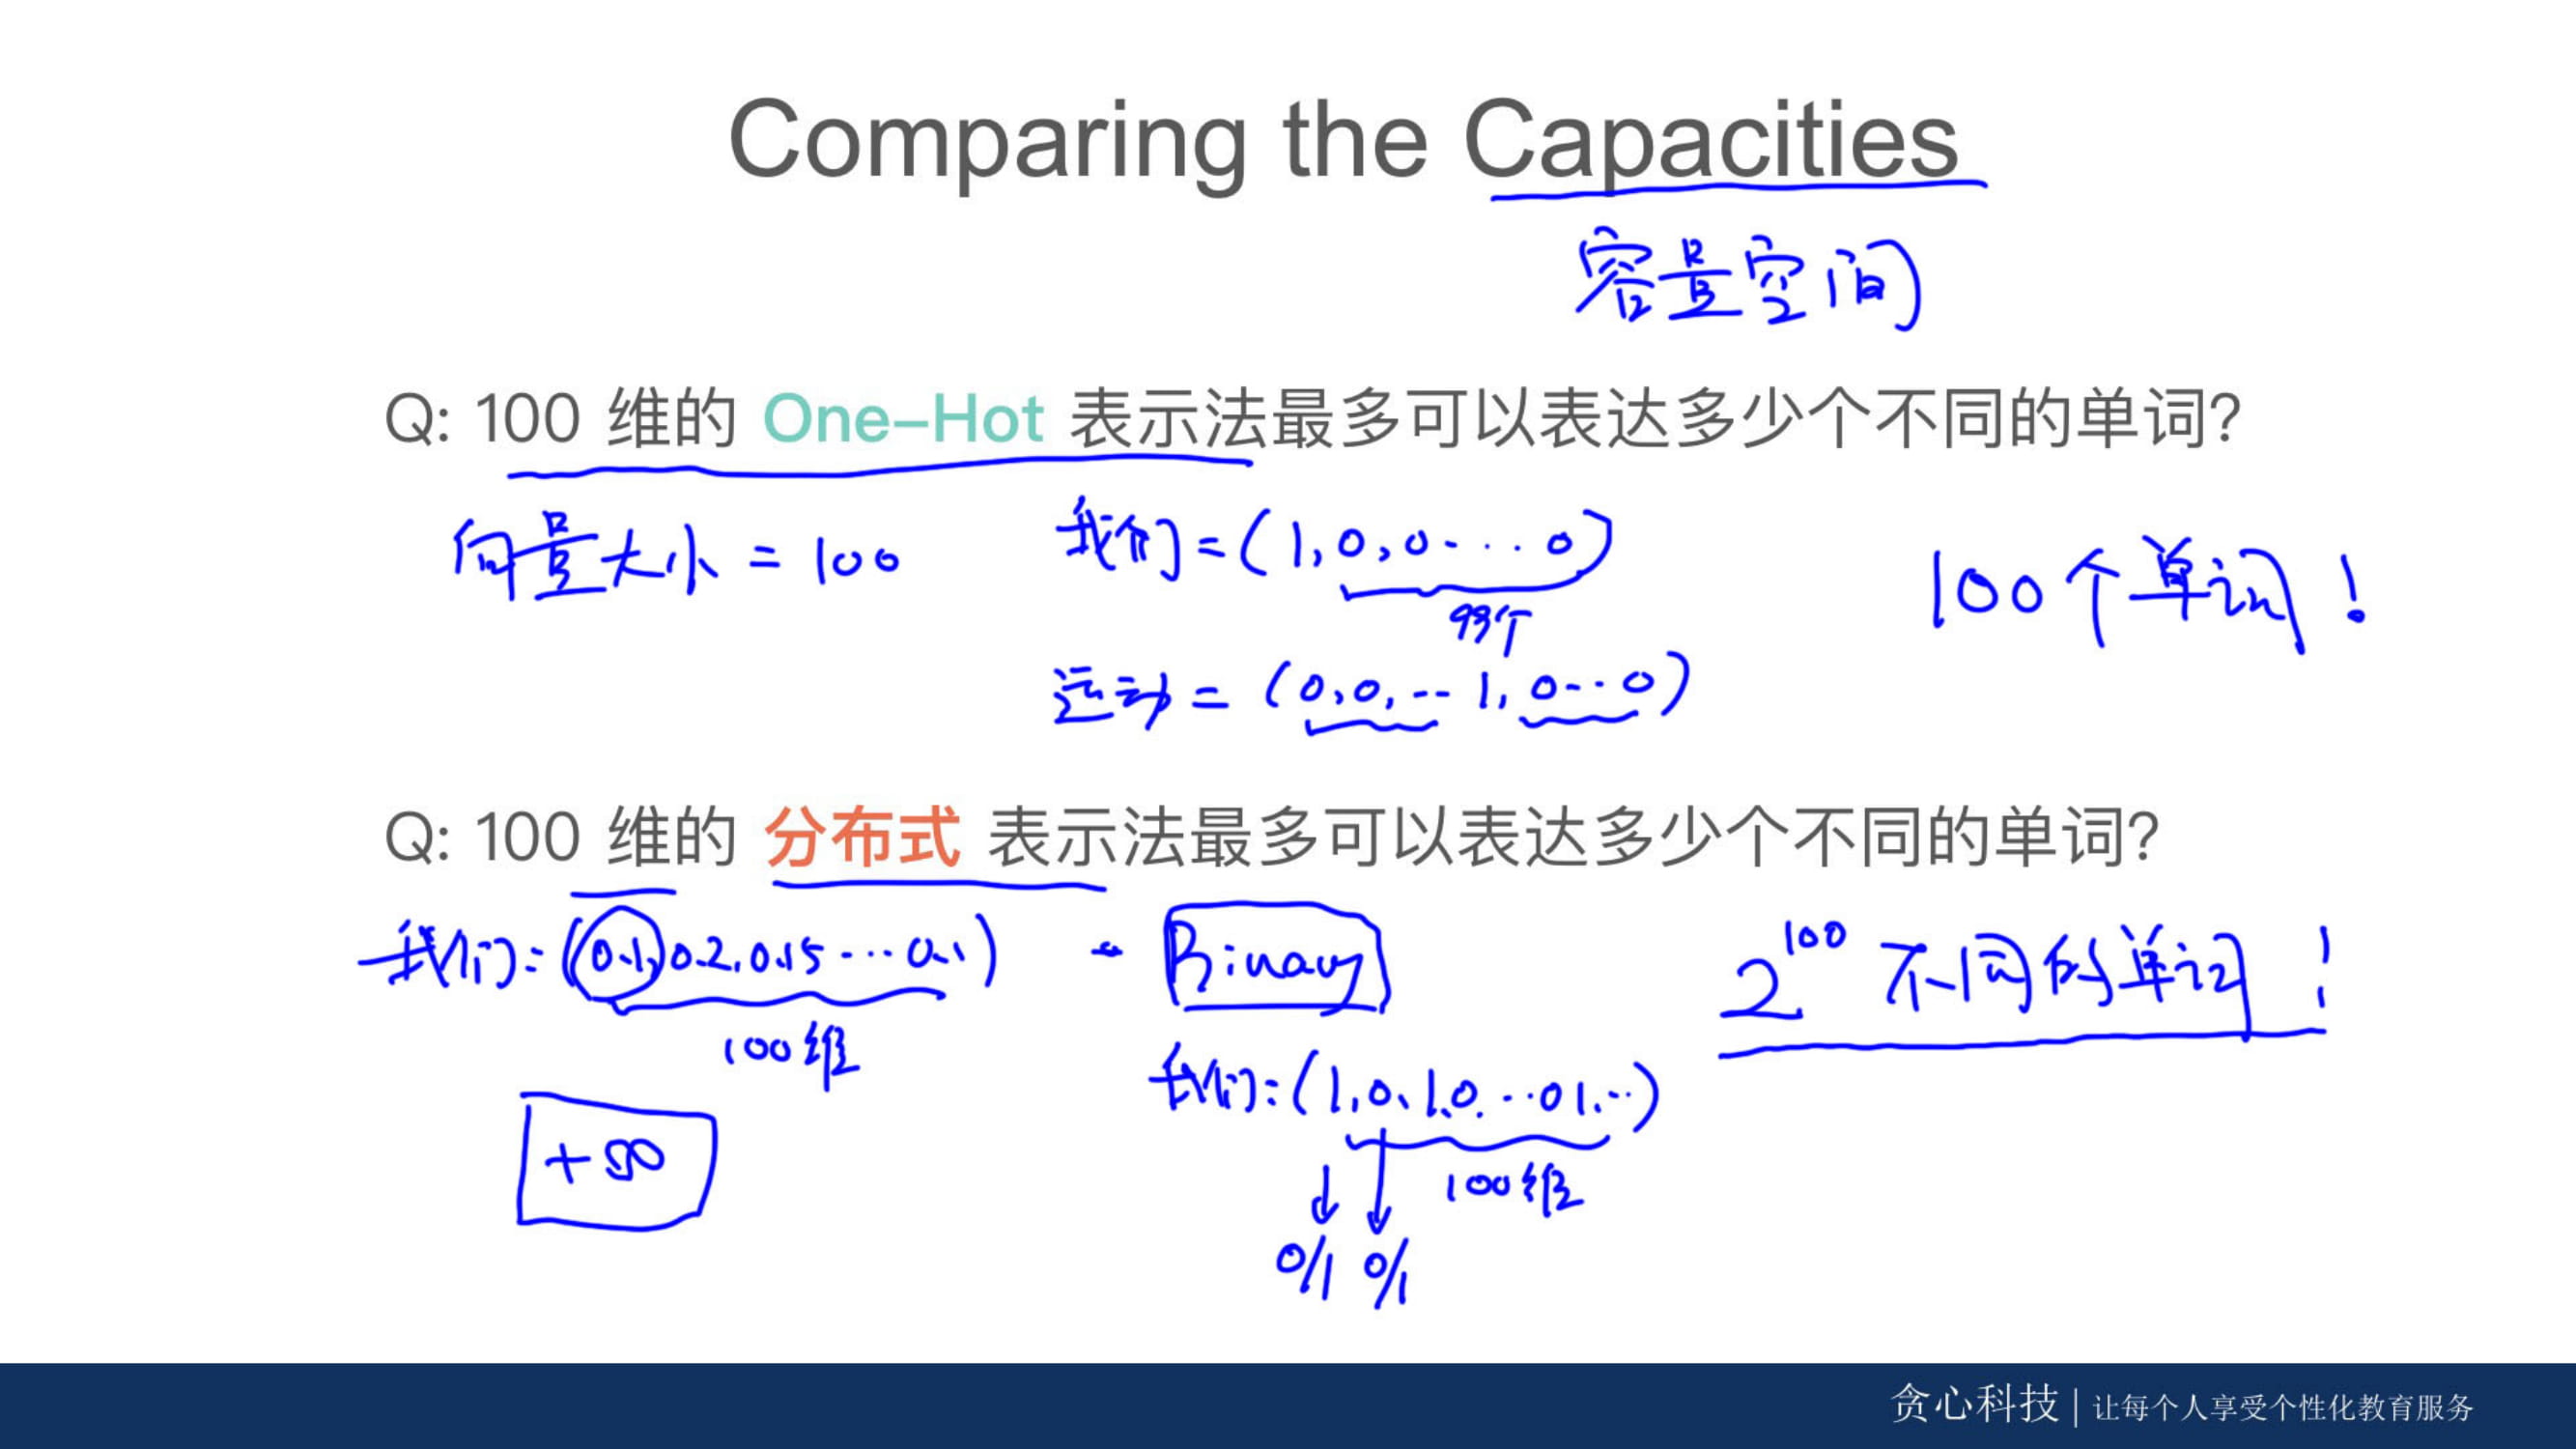 Comparing the Capacities
容量空间
Q: 100 维的 One-Hot 表示法最多可以表达多少个不同的单词?
向量大小 = 100
我们 = (1, 0, 0 ... 0)
99个
100个单词!
运动 = (0, 0, -- 1, 0 -- 0)
Q: 100 维的 分布式 表示法最多可以表达多少个不同的单词?
我们: (0.1, 0.2, 0.15 ... 0.1)
100维
+∞
Binary
我们: (1, 0, 1, 0, ... 0 1, ...)
100维
0/1 0/1
2^100 不同的单词!
贪心科技 | 让每个人享受个性化教育服务